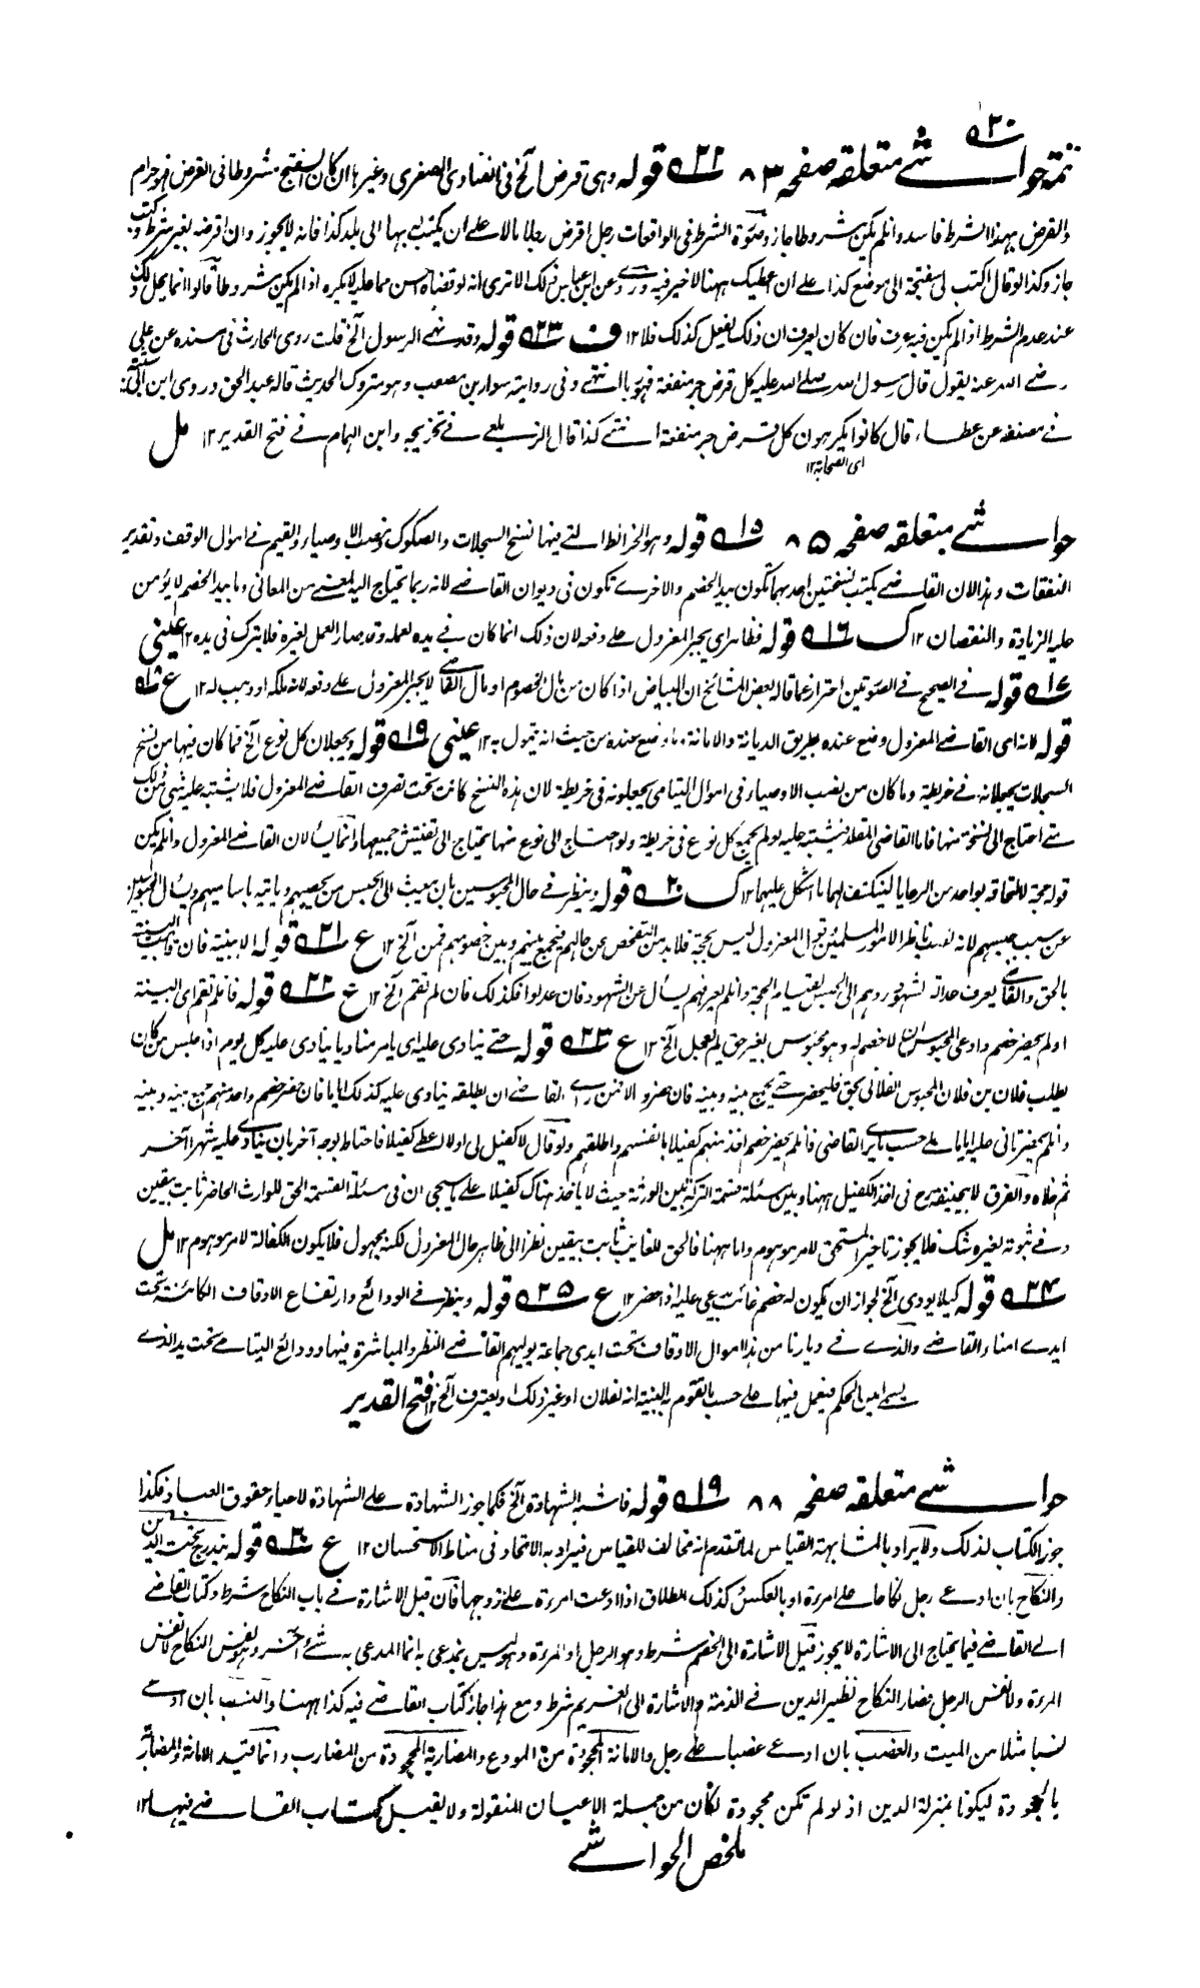 ٥٣٠
تتمه حواشے متعلقه صفحه ٨٣ ٢٢ قوله وهى قرض الخ فى الفتاوى الصغرى وغيرها ان كان السفتج مشروطا فى القرض فهو حرام
والقرض بهذا الشرط فاسد وان لم يكن مشروطا جاز وصورة الشرط فى الواقعات رجل اقرض رجلا مالا على ان يكتب بها الى بلد كذا فانه لا يجوز وان اقرضه بغير شرط وكتب
جاز وكذا لو قال اكتب لى سفتجة الى موضع كذا على ان اعطيك ههنا لا خير فيه وروى عن ابن عباس ذلك الا ترى انه لو قضاه احسن مما عليه لا يكره اذا لم يكن مشروطا قالوا انما يحل ذلك
عند عدم الشرط اذا لم يكن فيه عرف فان كان يعرف ان ذلك يفعل كذلك فلا ١٢ ف ٢٣ قوله وقد نهى الرسول الخ قلت روى الحارث فى مسنده عن على
رضے الله عنه يقول قال رسول الله صلے الله عليه كل قرض جر منفعة فهو ربا انتهے وفى روايته سوار بن مصعب وهو متروك الحديث قاله عبد الحق وروى ابن ابى شيبة
فے مصنفه عن عطاء قال كانوا يكرهون كل قرض جر منفعة انتهے كذا قال الزيلعے فے تخريجه وابن الهمام فے فتح القدير ١٢ مل
اى الصحابة ١٢
حواشے متعلقه صفحه ٨٥ ١٥ قوله وهو الخرائط التے فيها نسخ السجلات والصكوك ونصب الاوصياء والقيم فے اموال الوقف وتقدير
النفقات وهذا لان القاضے يكتب نسختين احدهما تكون بيد الخصم والاخرى تكون فى ديوان القاضے لانه ربما يحتاج اليه لمعنے من المعانى وما بيد الخصم لا يؤمن
عليه الزيادة والنقصان ١٢ ك ١٦ قوله فظاهر اى يجبر المعزول على دفعه لان ذلك انما كان فے يده لعمله وقد صار العمل لغيره فلا يترك فى يده ١٢ عينى
١٧ قوله فے الصحيح فے الصورتين احتراز عما قاله بعض المشائخ ان البياض اذا كان من مال الخصوم او مال القاضى لا يجبر المعزول على دفعه لانه ملكه او وهب له ١٢ ع ١٨
قوله لانه اى القاضے المعزول وضع عنده بطريق الديانة والامانة وما وضع عنده من حيث انه يتمول به ١٢ عينى ١٩ قوله ويجعلان كل نوع الخ فما كان فيها من نسخ
السجلات يجعلانه فے خريطة وما كان من نصب الاوصياء فى اموال اليتامى يجعلونه فى خريطة لان هذه النسخ كانت تحت تصرف القاضے المعزول فلا يشتبه عليه شئ من ذلك
متے احتاج الى نسخة منها فاما القاضى المقلد يشتبه عليه لو لم يجمع كل نوع فى خريطة ولو احتاج الى نوع منها يحتاج الى تفتيش جميعها وانما يسألان القاضے المعزول وان لم يكن
قوله حجة للتحاقه بواحد من الرعايا لينكشف لهما ما اشكل عليهما ١٢ ك ٢٠ قوله وينظر فے حال المحبوسين بان يبعث الى الحبس من يحصيهم وياتيه باساميهم ويسأل المحبوسين
عن سبب حبسهم لانه نصب ناظرا لامور المسلمين وقول المعزول ليس بحجة فلا بد من التفحص عن حالهم فيجمع بينهم وبين خصومهم فمن الخ ١٢ ع ٢١ قوله الا ببينة فان قامت البينة
بالحق والقاضى يعرف عدالة الشهود ردهم الى الحبس لقيام الحجة وان لم يعرفهم يسأل عن الشهود فان عدلوا فكذلك فان لم تقم الخ ١٢ ع ٢٢ قوله فان لم تقم اى البينة
او لم يحضر خصم وادعى المحبوس ان لا خصم له وهو محبوس بغير حق لم يعجل الخ ١٢ ع ٢٣ قوله حتے ينادى عليه اى يامر مناديا ينادى عليه كل يوم اذا جلس من كان
يطلب فلان بن فلان المحبوس الفلانى بحق فليحضر حتے يجمع بينه وبينه فان حضر والا فمن رأى القاضے ان يطلقه ينادى عليه كذلك اياما فان حضر خصم واحد منهم جمع بينه وبينه
وان لم يحضر تانى عليه اياما على حسب ما يرى القاضى فان لم يحضر خصم اخذ منهم كفيلا بانفسهم واطلقهم ولو قال لا كفيل لى اولا اعطى كفيلا فاحتاط بوجه آخر بان ينادى عليه شهرا آخر
ثم خلاه والفرق لابيحنيفة رح فى اخذ الكفيل ههنا وبين مسئلة قسمة التركة بين الورثة حيث لا ياخذ هناك كفيلا على ما يسجى ان فى مسئلة القسمة الحق للوارث الحاضر ثابت بيقين
وفے ثبوته لغيره شك فلا يجوز تاخير المستحق لامر موهوم واما ههنا فالحق للغائب ثابت بيقين نظرا الى ظاهر حال المعزول لكنه مجهول فلا يكون الكفالة لامر موهوم ١٢ مل
٢٤ قوله كيلا يودى الخ لجواز ان يكون له خصم غائب يدعى عليه اذا حضر ١٢ ع ٢٥ قوله وينظر فے الودائع وارتفاع الاوقاف الكائنة تحت
ايدے امناء القاضے والذے فے ديارنا من هذا اموال الاوقاف تحت ايدى جماعة يوليهم القاضے النظر والمباشرة فيها وودائع اليتامے تحت يد الذے
يسمى امين الحكم فيعمل فيها على حسب ما تقوم به البينة انه لفلان او غير ذلك او يعترف الخ ١٢ فتح القدير
حواشے متعلقه صفحه ٨٨ ١٩ قوله فاشبه الشهادة الخ فكما جوز الشهادة على الشهادة لاحياء حقوق العباد فكذا
جوز الكتاب لذلك ولا يراد بالمشابهة القياس لما تقدم انه مخالف للقياس فيراد به الاتحاد فى مناط الاستحسان ١٢ ع ٢٠ قوله يندرج تحت الدين
والنكاح بان ادعے رجل نكاحا على امرءة او بالعكس كذلك الطلاق اذا ادعت امرءة على زوجها فان قيل الاشارة فے باب النكاح شرط وكتاب القاضے
الے القاضے فيما يحتاج الى الاشارة لا يجوز قيل الاشارة الى الخصم شرط وهو الرجل او المرءة وليس بمدعى به انما المدعى به شئے آخر وهو نفس النكاح لا نفس
المرءة ولا نفس الرجل فصار النكاح نظير الدين فے الذمة والاشارة الى الغريم شرط ومع هذا جاز كتاب القاضے فيه كذا ههنا والنسب بان ادعے
نسبا مثلا من الميت والغصب بان ادعے غصبا علے رجل والامانة المجحودة من المودع والمضاربة المجحودة من المضارب وانما قيد الامانة والمضاربة
بالجحودة ليكونا بمنزلة الدين اذ لو لم تكن مجحودة لكان من جملة الاعيان المنقولة ولا يقبل كتاب القاضے فيها ١٢
ملخص الحواشے